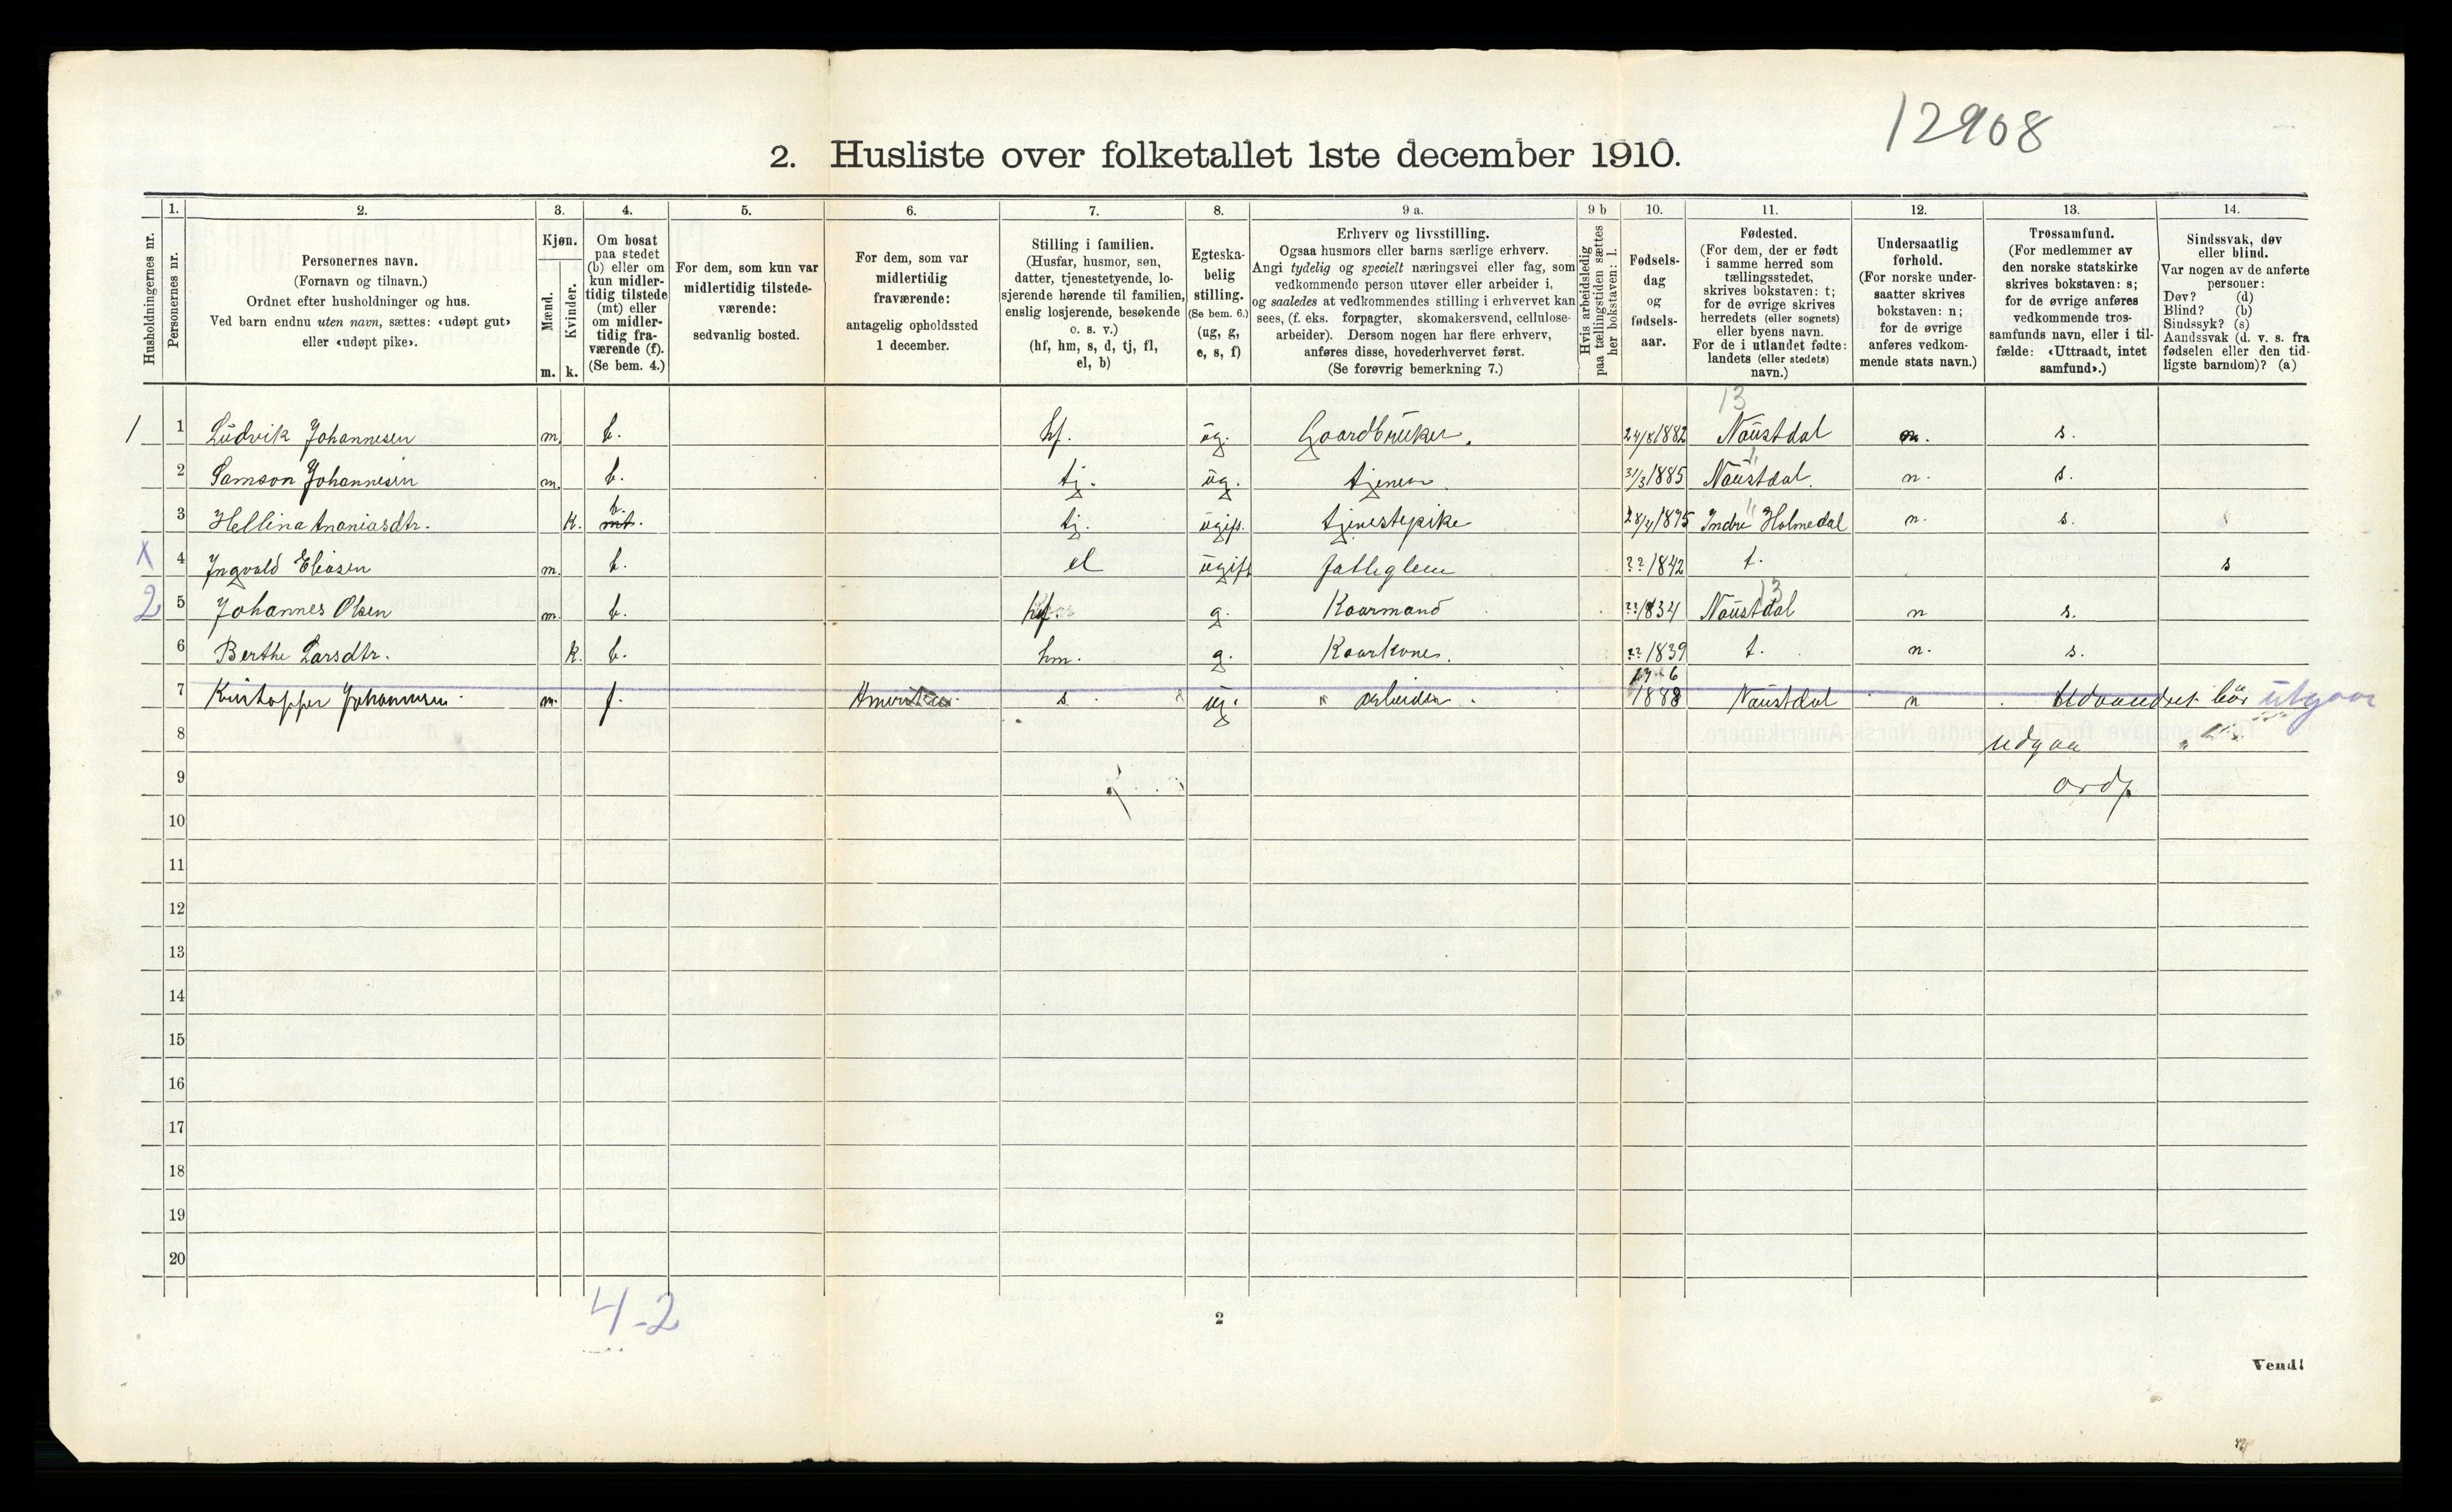 12908
2. Husliste over folketallet 1ste december 1910.
Husholdningernes nr.
1.
Personernes nr.
2.
Personernes navn.
(Fornavn og tilnavn.)
Ordnet efter husholdninger og hus.
Ved barn endnu uten navn, sættes: «udøpt gut»
eller «udøpt pike».
3.
Kjøn.
Mænd.
Kvinder.
m. k.
4.
Om bosat
paa stedet
(b) eller om
kun midler-
tidig tilstede
(mt) eller
om midler-
tidig fra-
værende (f).
(Se bem. 4.)
5.
For dem, som kun var
midlertidig tilstede-
værende:
sedvanlig bosted.
6.
For dem, som var
midlertidig
fraværende:
antagelig opholdssted
1 december.
7.
Stilling i familien.
(Husfar, husmor, søn,
datter, tjenestetyende, lo-
sjerende hørende til familien,
enslig losjerende, besøkende
o. s. v.)
(hf, hm, s, d, tj, fl,
el, b)
8.
Egteska-
belig
stilling.
(Se bem. 6.)
(ug, g,
e, s, f)
9 a.
Erhverv og livsstilling.
Ogsaa husmors eller barns særlige erhverv.
Angi tydelig og specielt næringsvei eller fag, som
vedkommende person utøver eller arbeider i,
og saaledes at vedkommendes stilling i erhvervet kan
sees, (f. eks. forpagter, skomakersvend, cellulose-
arbeider). Dersom nogen har flere erhverv,
anføres disse, hovederhvervet først.
(Se forøvrig bemerkning 7.)
9 b
Hvis arbeidsledig
paa tællingstiden sættes
her bokstaven: l.
10.
Fødsels-
dag
og
fødsels-
aar.
11.
Fødested.
(For dem, der er født
i samme herred som
tællingsstedet,
skrives bokstaven: t;
for de øvrige skrives
herredets (eller sognets)
eller byens navn.
For de i utlandet fødte:
landets (eller stedets)
navn.)
12.
Undersaatlig
forhold.
(For norske under-
saatter skrives
bokstaven: n;
for de øvrige
anføres vedkom-
mende stats navn.)
13.
Trossamfund.
(For medlemmer av
den norske statskirke
skrives bokstaven: s;
for de øvrige anføres
vedkommende tros-
samfunds navn, eller i til-
fælde: «Uttraadt, intet
samfund».)
14.
Sindssvak, døv
eller blind.
Var nogen av de anførte
personer:
Døv? (d)
Blind? (b)
Sindssyk? (s)
Aandssvak (d. v. s. fra
fødselen eller den tid-
ligste barndom)? (a)
13
1 1 Ludvik Johannesen m. b. hf. ug. Gaardbruker. 24/8 1882 Naustdal n. s.
2 Samson Johannesen m. b. tj. ug. tjener. 31/3 1885 Naustdal. n. s.
b.
3 Hellina Ananiasdtr. k. mt. tj. ugift. tjenestepike 28/4 1895 Indre Holmedal n. s.
X 4 Ingvald Eliasen m. b. el ugift Fattiglem ?? 1842 t. s
13
2 5 Johannes Olsen m. b. hf. g. Kaarmand ?? 1834 Naustdal n s.
6 Berthe Larsdtr. k. b. hm. g. Kaarkone. ?? 1839 t. n. s.
7 Kristoffer Johannesen. m. f. Amerika s ug. arbeider. 1888 Naustdal n Udvandret bør utgaa
8 udgaa
9 ordf
10
11
12
13
14
15
16
17
18
19
20
4-2
2
Vend!